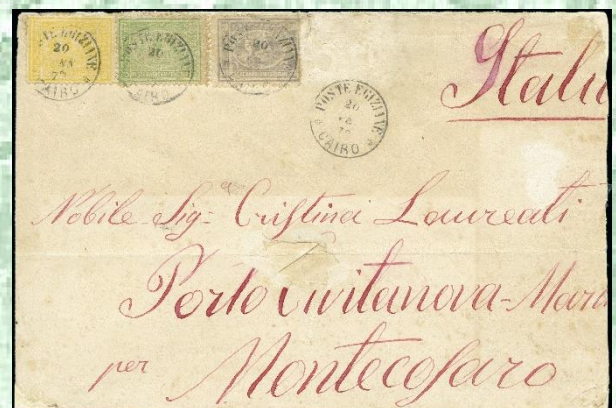 POSTE EGIZIANE
20
CAIRO
POSTE EGIZIANE
20
POSTE EGIZIANE
20
POSTE EGIZIANE
20
CAIRO
Nobile Sigª Cristina Laureati
Porto Civitanova-Mar
per
Montecosaro